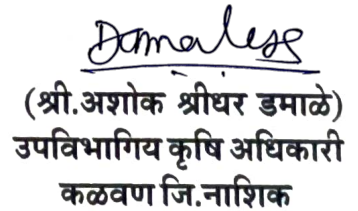 Damale
(श्री.अशोक श्रीधर डमाळे)
उपविभागिय कृषि अधिकारी
कळवण जि.नाशिक